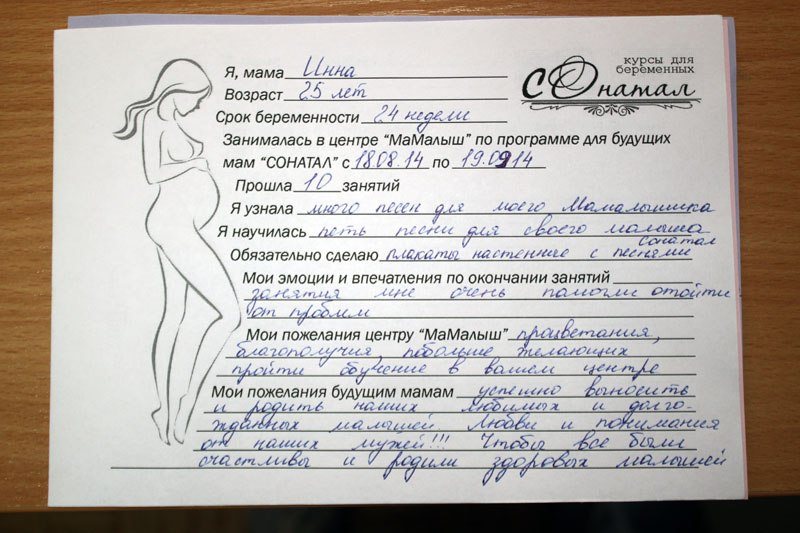 курсы для
беременных
СОнатал
Я, мама Инна
Возраст 25 лет
Срок беременности 24 недели
Занималась в центре “МаМалыш” по программе для будущих
мам “СОНАТАЛ” с 18.08.14 по 19.09.14
Прошла 10 занятий
Я узнала много песен для моего Мамалышика
Я научилась петь песни для своего малыша
Обязательно сделаю плакаты настенные с песнями Сонатал
Мои эмоции и впечатления по окончании занятий
занятия мне очень помогли отойти
от проблем
Мои пожелания центру “МаМалыш” процветания,
благополучия, побольше желающих
пройти обучение в вашем центре
Мои пожелания будущим мамам успешно выносить
и родить наших любимых и долго-
жданных малышей. Любви и понимания
от наших мужей!!! Чтобы все были
счастливы и родили здоровых малышей